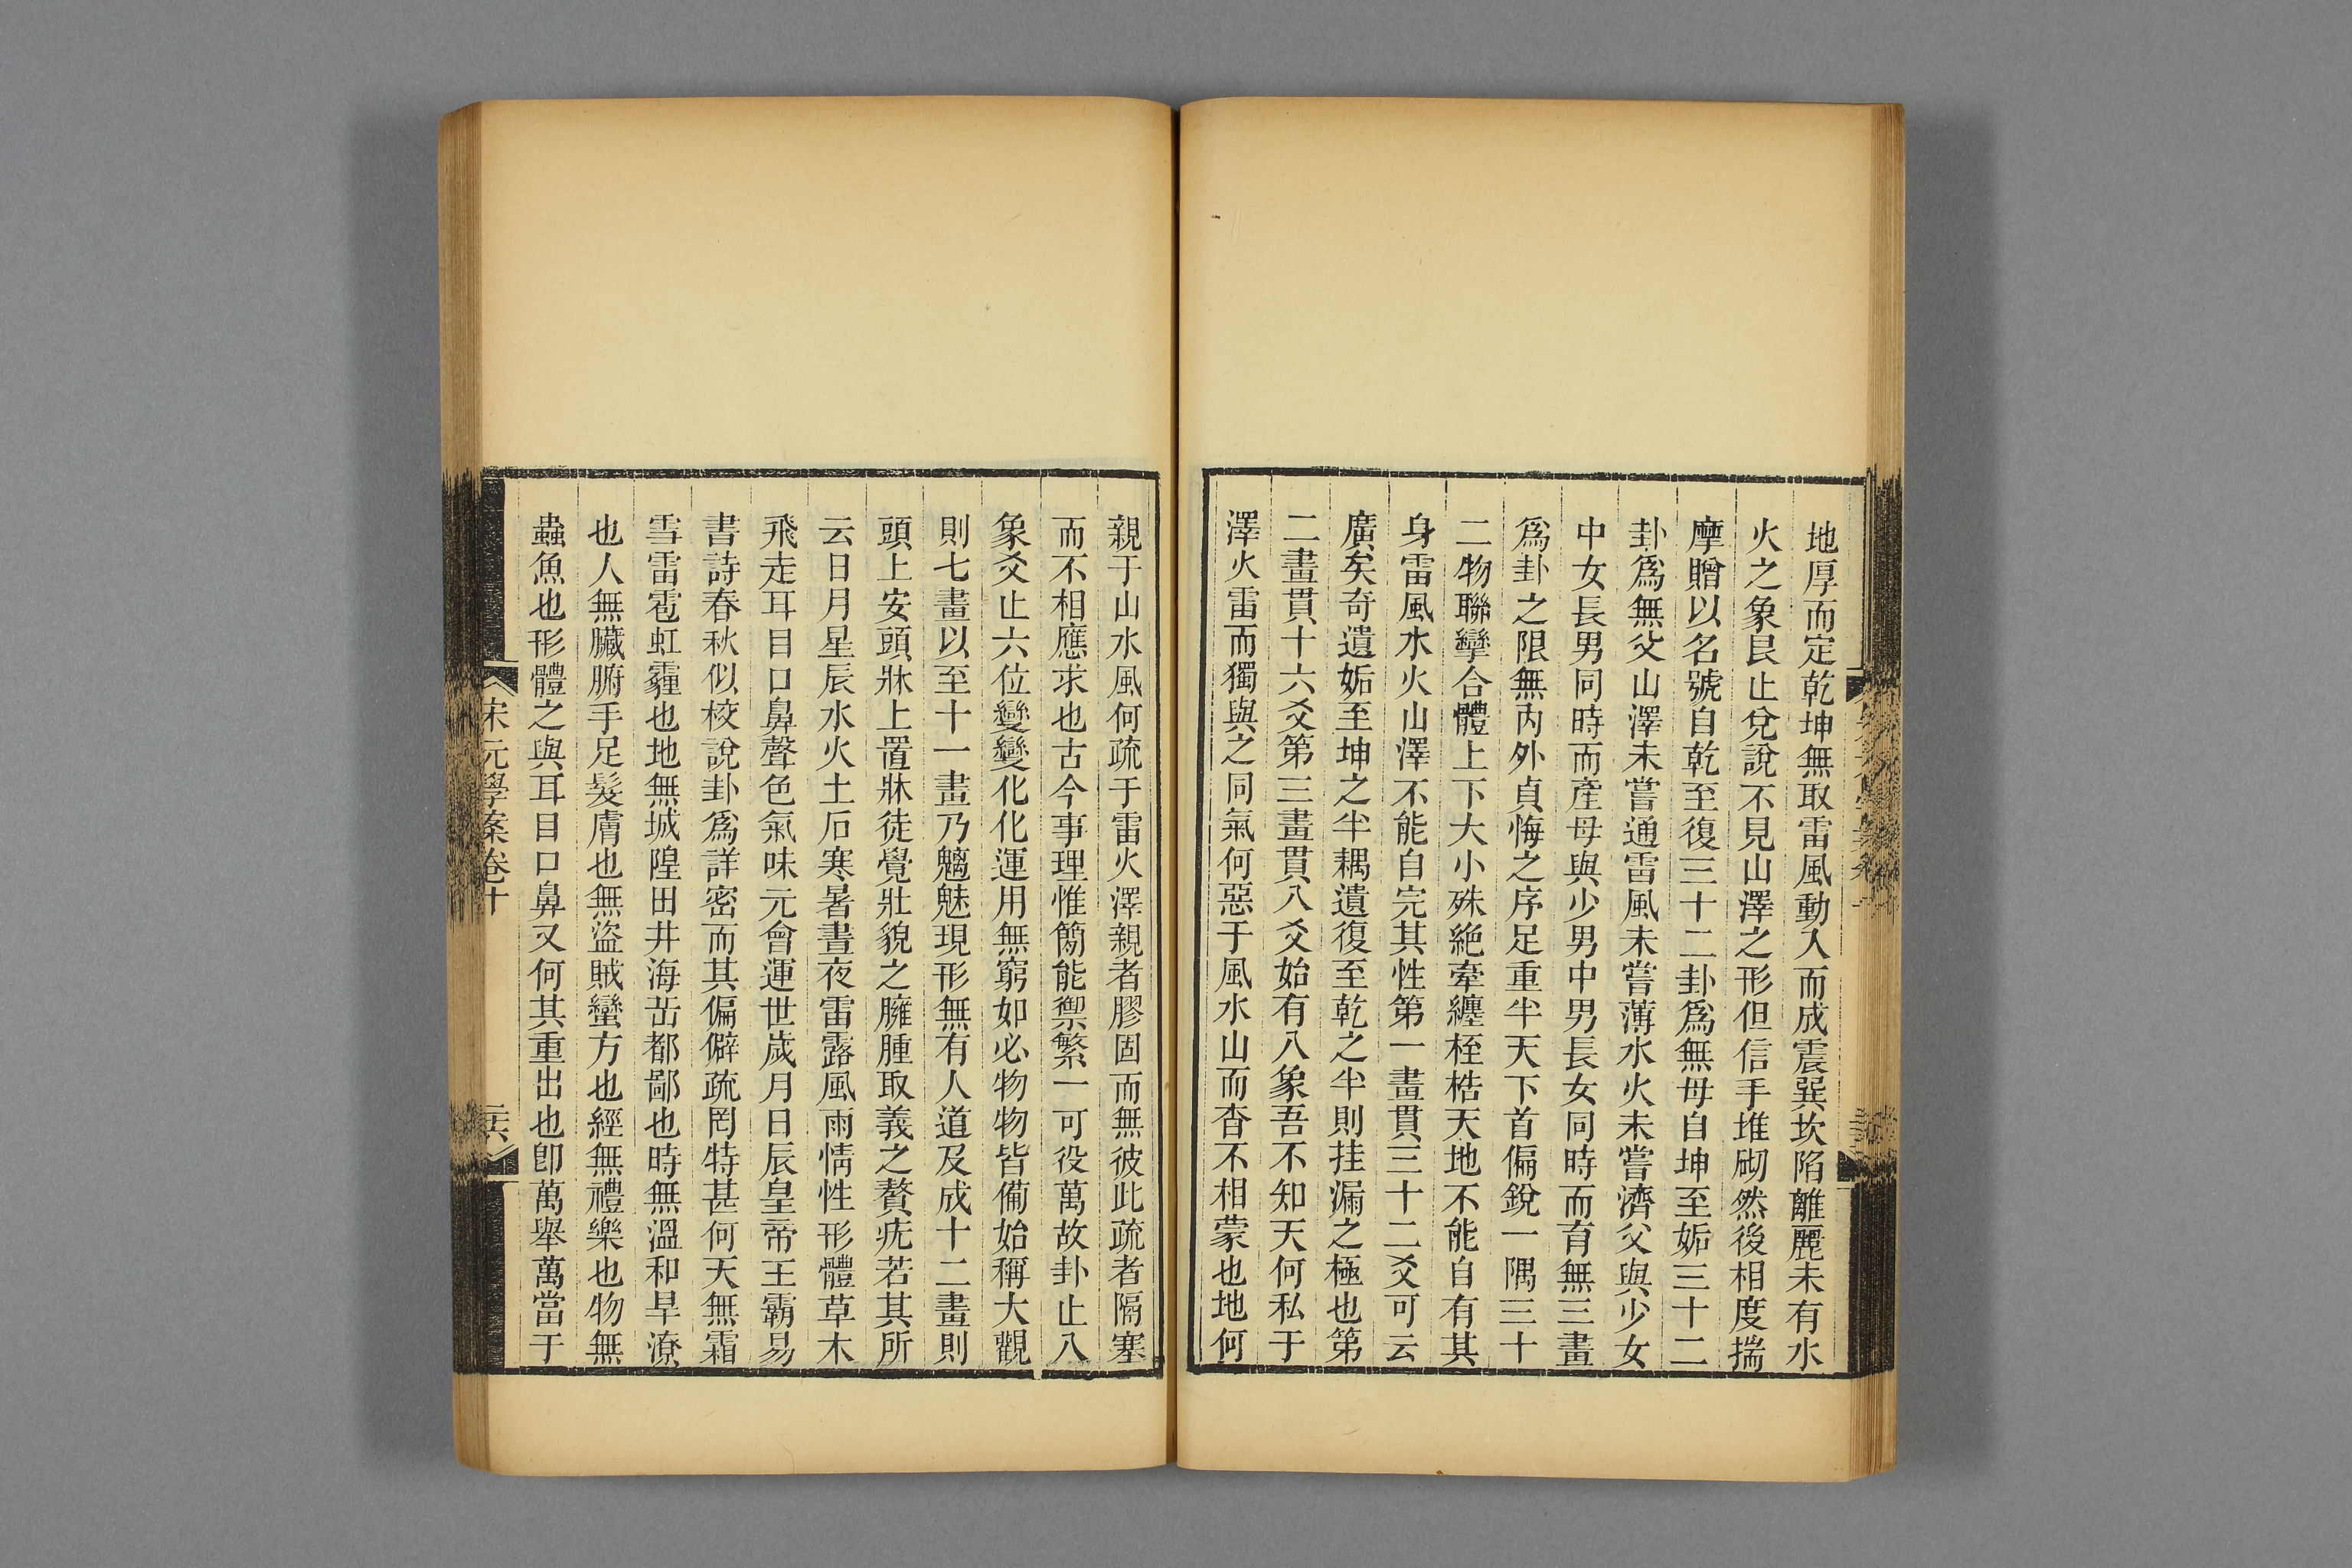 地厚而定乾坤無取雷風動入而成震巽坎陷離麗未有水
火之象艮止兌說不見山澤之形但信手堆砌然後相度揣
摩贈以名號自乾至復三十二卦爲無母自坤至姤三十二
卦爲無父山澤未嘗通雷風未嘗薄水火未嘗濟父與少女
中女長男同時而產母與少男中男長女同時而育無三畫
爲卦之限無內外貞悔之序足重半天下首偏銳一隅三十
二物聯攣合體上下大小殊絶牽纏桎梏天地不能自有其
身雷風水火山澤不能自完其性第一畫貫三十二爻可云
廣矣奇遺姤至坤之半耦遺復至乾之半則挂漏之極也第
二畫貫十六爻第三畫貫八爻始有八象吾不知天何私于
澤火雷而獨與之同氣何惡于風水山而杳不相蒙也地何
親于山水風何疏于雷火澤親者膠固而無彼此疏者隔塞
而不相應求也古今事理惟簡能禦繁一可役萬故卦止八
象爻止六位變變化化運用無窮如必物物皆備始稱大觀
則七畫以至十一畫乃魑魅現形無有人道及成十二畫則
頭上安頭牀上置牀徒覺壯貌之臃腫取義之贅疣若其所
云日月星辰水火土石寒暑晝夜雷露風雨情性形體草木
飛走耳目口鼻聲色氣味元會運世歲月日辰皇帝王霸易
書詩春秋似校說卦爲詳密而其偏僻疏罔特甚何天無霜
雪雷雹虹霾也地無城隍田井海岳都鄙也時無溫和旱潦
也人無臟腑手足髮膚也無盜賊蠻方也經無禮樂也物無
蟲魚也形體之與耳目口鼻又何其重出也卽萬舉萬當于
宋元學案卷十
二六